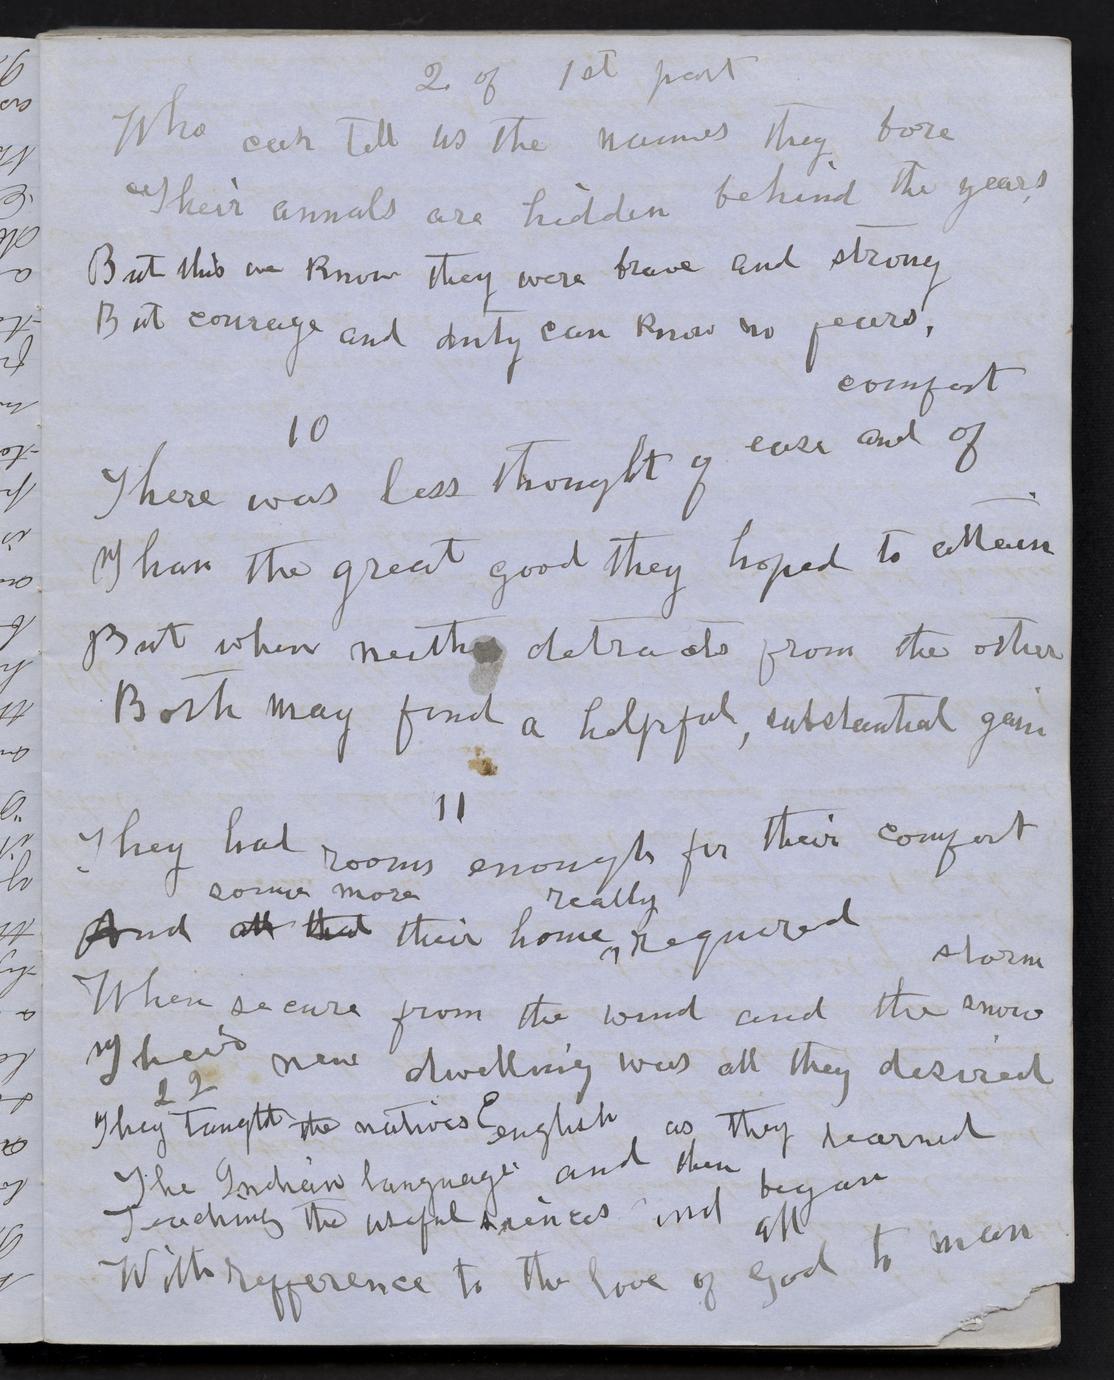 2 of 1st part
Who can tell us the names they bore
Their annals are hidden behind the years,
But this we know they were brave and strong
But courage and duty can know no fears,
10
There was less thought of ease and of comfort
Than the great good they hoped to attain
But when neither detracts from the other
Both may find a helpful, substantial gain
11
They had rooms enough for their comfort
some more really
And all that their home ^ required
When secure from the wind and the snow storm
Their new dwelling was all they desired
22
They taught the natives English as they learned
The Indian language and then began
Teaching the useful siences and all
With refference to the love of God to man